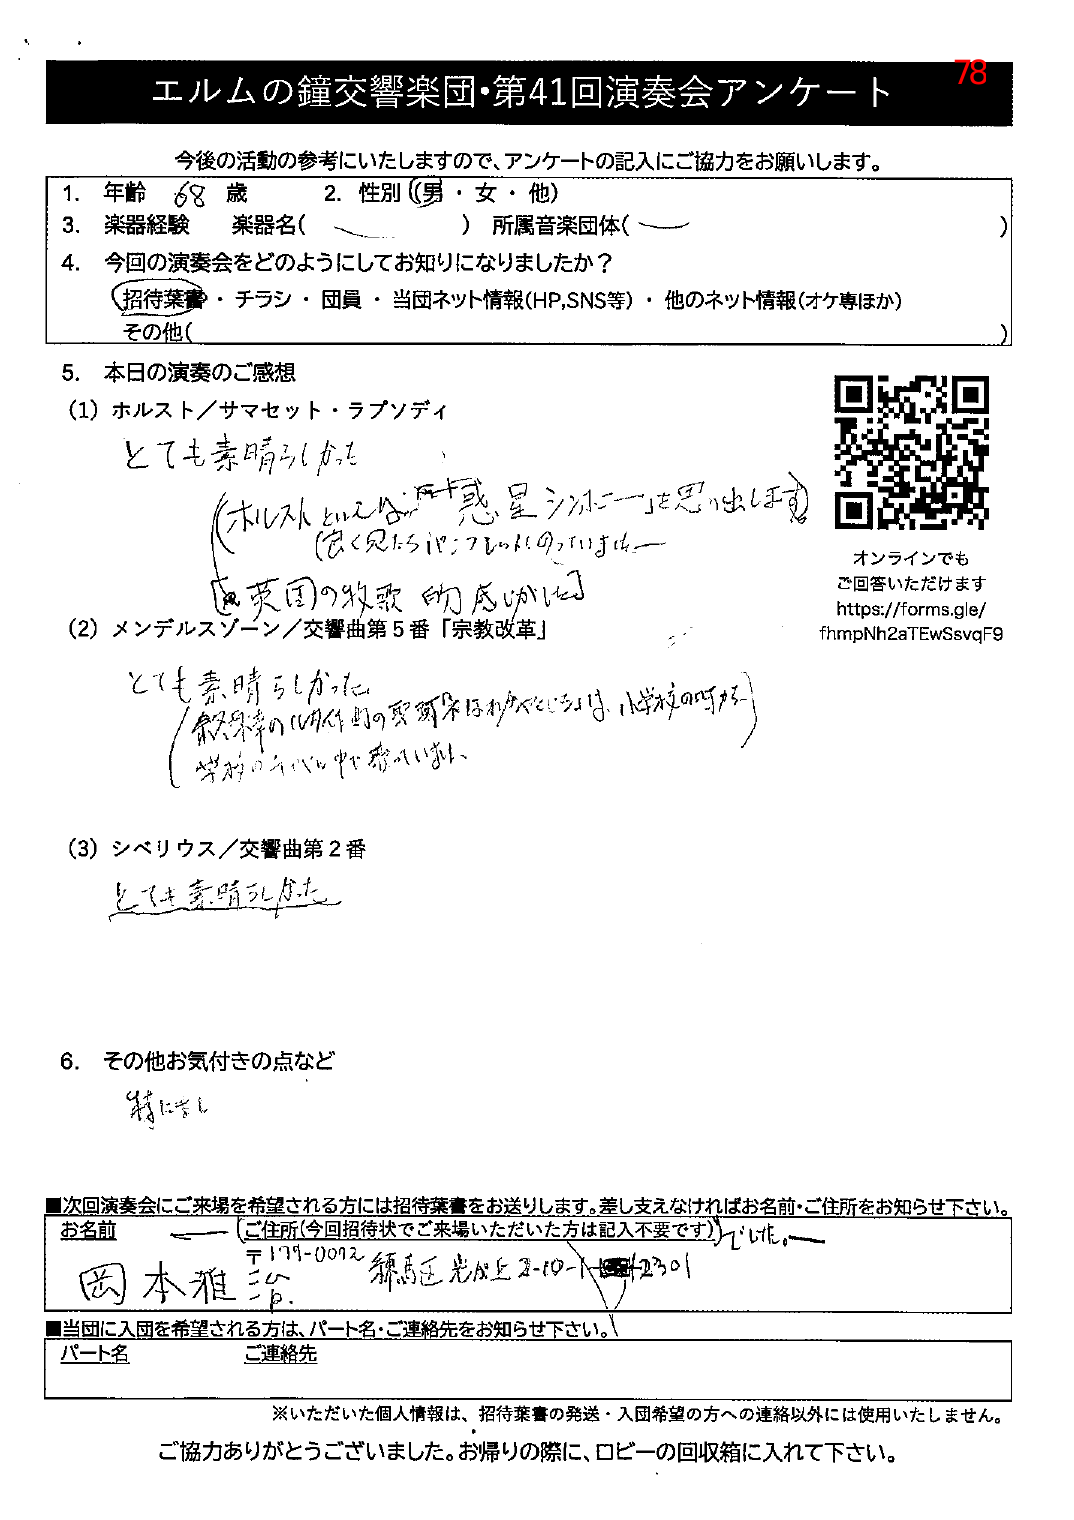 78
エルムの鐘交響楽団・第41回演奏会アンケート
今後の活動の参考にいたしますので、アンケートの記入にご協力をお願いします。
1. 年齢 68 歳 2. 性別(男・女・他)
3. 楽器経験 楽器名( ) 所属音楽団体( )
4. 今回の演奏会をどのようにしてお知りになりましたか?
招待葉書・チラシ・団員・当団ネット情報(HP,SNS等)・他のネット情報(オケ専ほか)
その他( )
5. 本日の演奏のご感想
(1)ホルスト/サマセット・ラプソディ
とても素晴らしかった
(ホルストといえば 惑星 シンホニー」を思い出します)
(良く見たらパンフレットにのっていました
英国の牧歌的感じがした]
(2)メンデルスゾーン/交響曲第5番「宗教改革」
とても素晴らしかった
は、小学校の時から
学校の 中で 歌っていました。
(3)シベリウス/交響曲第2番
とても素晴らしかった
オンラインでも
ご回答いただけます
https://forms.gle/
fhmpNh2aTEwSsvqF9
6. その他お気付きの点など
特になし
■次回演奏会にご来場を希望される方には招待葉書をお送りします。差し支えなければお名前・ご住所をお知らせ下さい。
お名前 ご住所(今回招待状でご来場いただいた方は記入不要です) でした。
〒179-0072 練馬区光が丘2-10-1 2301
岡本雅治
■当団に入団を希望される方は、パート名・ご連絡先をお知らせ下さい。
パート名 ご連絡先
※いただいた個人情報は、招待葉書の発送・入団希望の方への連絡以外には使用いたしません。
ご協力ありがとうございました。お帰りの際に、ロビーの回収箱に入れて下さい。